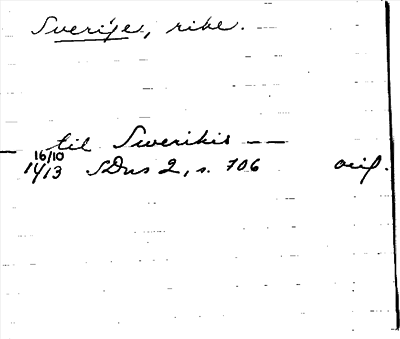 Sverige, rike.
— til Swerikis — —
16/10
1413 SDns 2, s. 706 orig.